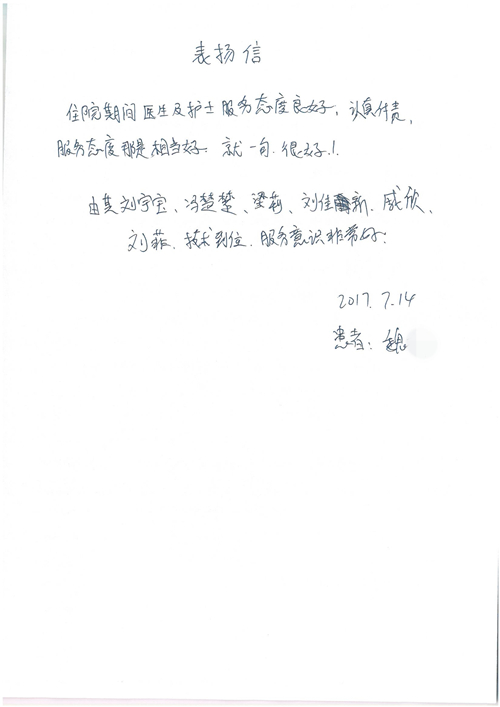 表扬信
住院期间医生及护士服务态度良好，认真付责，
服务态度那是相当好。就一句，很好！！
由其刘宇宝、冯楚楚、梁莉、刘佳新、戚欣、
刘菲、技术到位、服务意识非常好：
2017.7.14
患者：魏